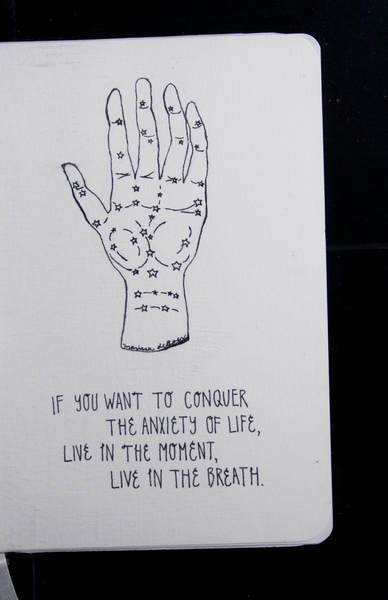 IF YOU WANT TO CONQUER
THE ANXIETY OF LIFE,
LIVE IN THE MOMENT,
LIVE IN THE BREATH.